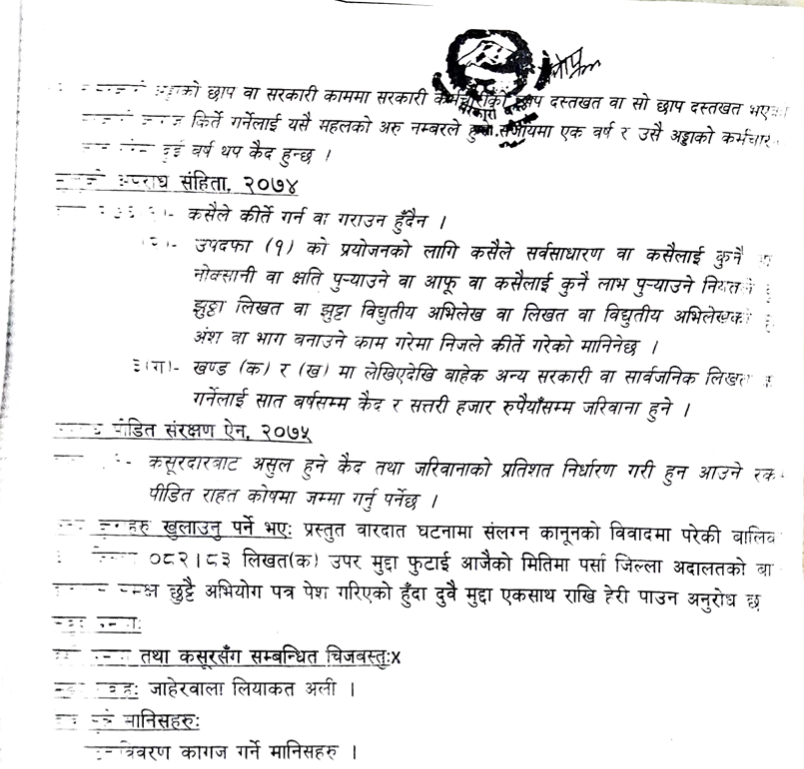 छाप वा सरकारी काममा सरकारी कर्मचारीको छाप दस्तखत वा सो छाप दस्तखत
किर्ते गर्नेलाई यसै महलको अरु नम्बरले हुने सजायमा एक वर्ष र उसै अड्डाको
वर्ष थप कैद हुन्छ ।
संहिता, २०७४
कसैले कीर्ते गर्न वा गराउन हुँदैन ।
उपदफा (१) को प्रयोजनको लागि कसैले सर्वसाधारण वा कसैलाई कुनै
नोक्सानी वा क्षति पुऱ्याउने वा आफू वा कसैलाई कुनै लाभ पुऱ्याउने
झुठ्ठा लिखत वा झुठ्ठा विद्युतीय अभिलेख वा लिखत वा विद्युतीय
अंश वा भाग बनाउने काम गरेमा निजले कीर्ते गरेको मानिनेछ ।
खण्ड (क) र (ख) मा लेखिएदेखि बाहेक अन्य सरकारी वा सार्वजनिक
गर्नेलाई सात बर्षसम्म कैद र सत्तरी हजार रुपैयाँसम्म जरिवाना हुने ।
संरक्षण ऐन, २०७५
कसूरदारबाट असुल हुने कैद तथा जरिवानाको प्रतिशत निर्धारण गरी हुन आउने
पीडित राहत कोषमा जम्मा गर्नु पर्नेछ ।
खुलाउनु पर्ने भएः प्रस्तुत वारदात घटनामा संलग्न कानूनको विवादमा परेकी
०८२।८३ लिखत(क) उपर मुद्दा फुटाई आजैको मितिमा पर्सा जिल्ला अदालतको
छुट्टै अभियोग पत्र पेश गरिएको हुँदा दुवै मुद्दा एकसाथ राखि हेरी पाउन अनुरोध छ
तथा कसूरसँग सम्बन्धित चिजबस्तुःx
जाहेरवाला लियाकत अली ।
मानिसहरुः
कागज गर्ने मानिसहरु ।